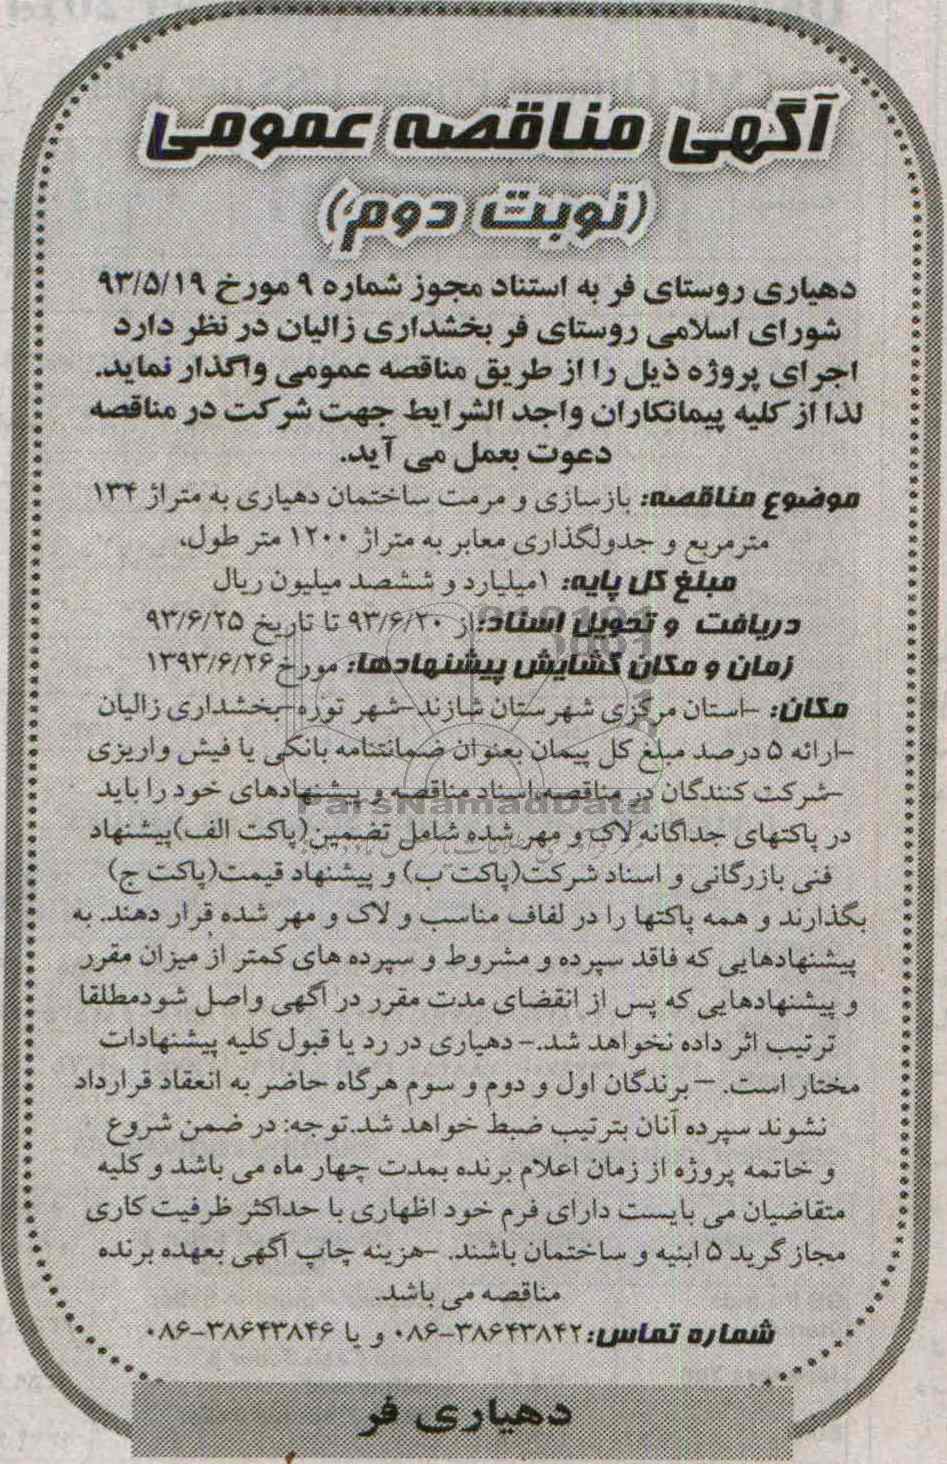 آگهی مناقصه عمومی
(نوبت دوم)
دهیاری روستای فر به استناد مجوز شماره ۹ مورخ ۹۳/۵/۱۹
شورای اسلامی روستای فر بخشداری زالیان در نظر دارد
اجرای پروژه ذیل را از طریق مناقصه عمومی واگذار نماید.
لذا از کلیه پیمانکاران واجد الشرایط جهت شرکت در مناقصه
دعوت بعمل می آید.
موضوع مناقصه: بازسازی و مرمت ساختمان دهیاری به متراژ ۱۳۴
مترمربع و جدولگذاری معابر به متراژ ۱۲۰۰ متر طول،
مبلغ کل پایه: ۱میلیارد و ششصد میلیون ریال
دریافت و تحویل اسناد: از ۹۳/۶/۲۰ تا تاریخ ۹۳/۶/۲۵
زمان و مکان گشایش پیشنهادها: مورخ ۱۳۹۳/۶/۲۶
مکان: -استان مرکزی شهرستان شازند-شهر توره-بخشداری زالیان
-ارائه ۵ درصد مبلغ کل پیمان بعنوان ضمانتنامه بانکی یا فیش واریزی
-شرکت کنندگان در مناقصه، اسناد مناقصه و پیشنهادهای خود را باید
ParsNamadData
در پاکتهای جداگانه لاک و مهر شده شامل تضمین(پاکت الف)پیشنهاد
فنی بازرگانی و اسناد شرکت(پاکت ب) و پیشنهاد قیمت(پاکت ج)
بگذارند و همه پاکتها را در لفاف مناسب و لاک و مهر شده قرار دهند. به
پیشنهادهایی که فاقد سپرده و مشروط و سپرده های کمتر از میزان مقرر
و پیشنهادهایی که پس از انقضای مدت مقرر در آگهی واصل شودمطلقا
ترتیب اثر داده نخواهد شد.- دهیاری در رد یا قبول کلیه پیشنهادات
مختار است. - برندگان اول و دوم و سوم هرگاه حاضر به انعقاد قرارداد
نشوند سپرده آنان بترتیب ضبط خواهد شد.توجه: در ضمن شروع
و خاتمه پروژه از زمان اعلام برنده بمدت چهار ماه می باشد و کلیه
متقاضیان می بایست دارای فرم خود اظهاری با حداکثر ظرفیت کاری
مجاز گرید ۵ ابنیه و ساختمان باشند. -هزینه چاپ آگهی بعهده برنده
مناقصه می باشد.
شماره تماس: ۳۸۶۴۳۸۴۲-۰۸۶ و یا ۳۸۶۴۳۸۴۶-۰۸۶
دهیاری فر